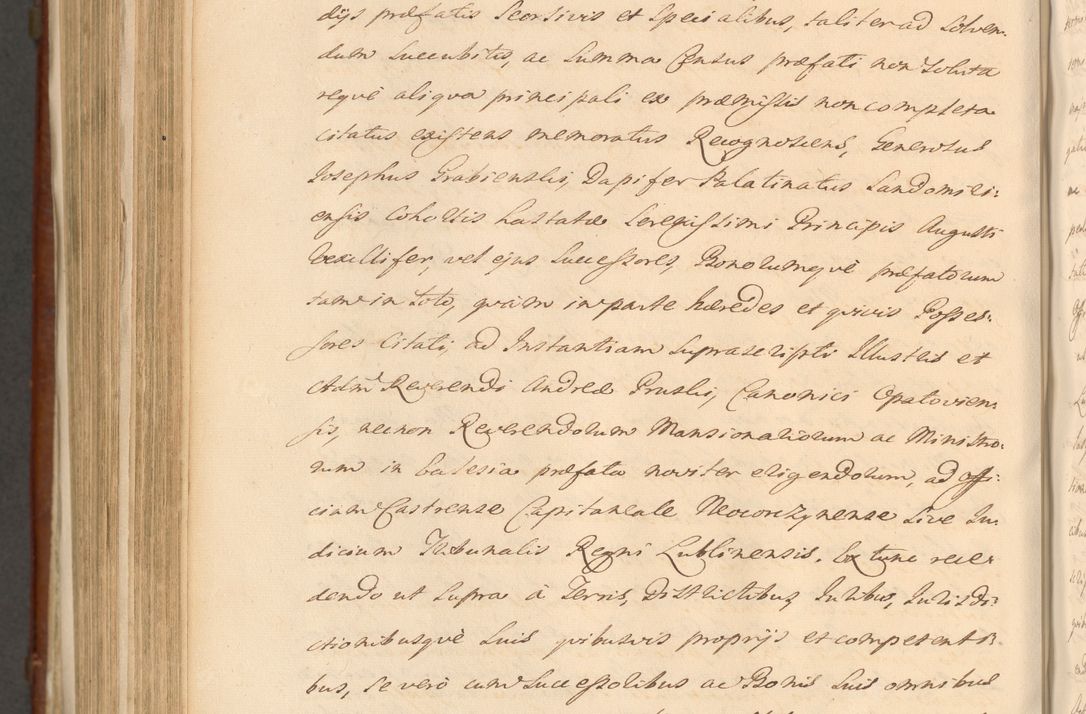 dijs præfatis seorsivis et specialibus, taliter ad solven¬
dum succubitis, ac summa Census præfati non soluta
requè aliqua principali ex præmissis non completa
citatus existens memoratus Recognoscens, Generosus
Josephus Grabienski, Dapifer Palatinatus Sandomiri:
ensis Cohortis hastatæ Serenissimi Principis Augusti
Vexillifer, vel ejus Successores, Bonorumqvè præfatorum
tam in toto, qvàm in parte hæredes et qvivis Posses:
sores Citati, ad Instantiam suprascripti Illustris et
Adm Reverendi Andreæ Pruski, Canonici Opatovien¬
sis, necnon Reverendorum Mansionariorum ac Ministro:
rum in Eclesia præfata noviter erigendorum, ad offi:
cium Castrense Capitaneale Neocorczynense sive Ju¬
dicium Tribunalis Regni Lublinensis. Ex tunc rece¬
dendo ut supra à Terris, Districtibus, Juribus, Jurisdi¬
ctionibusqvè suis qvibusvis proprijs et competenti¬
bus, se verò cum Successoribus ac Bonis suis omnibus